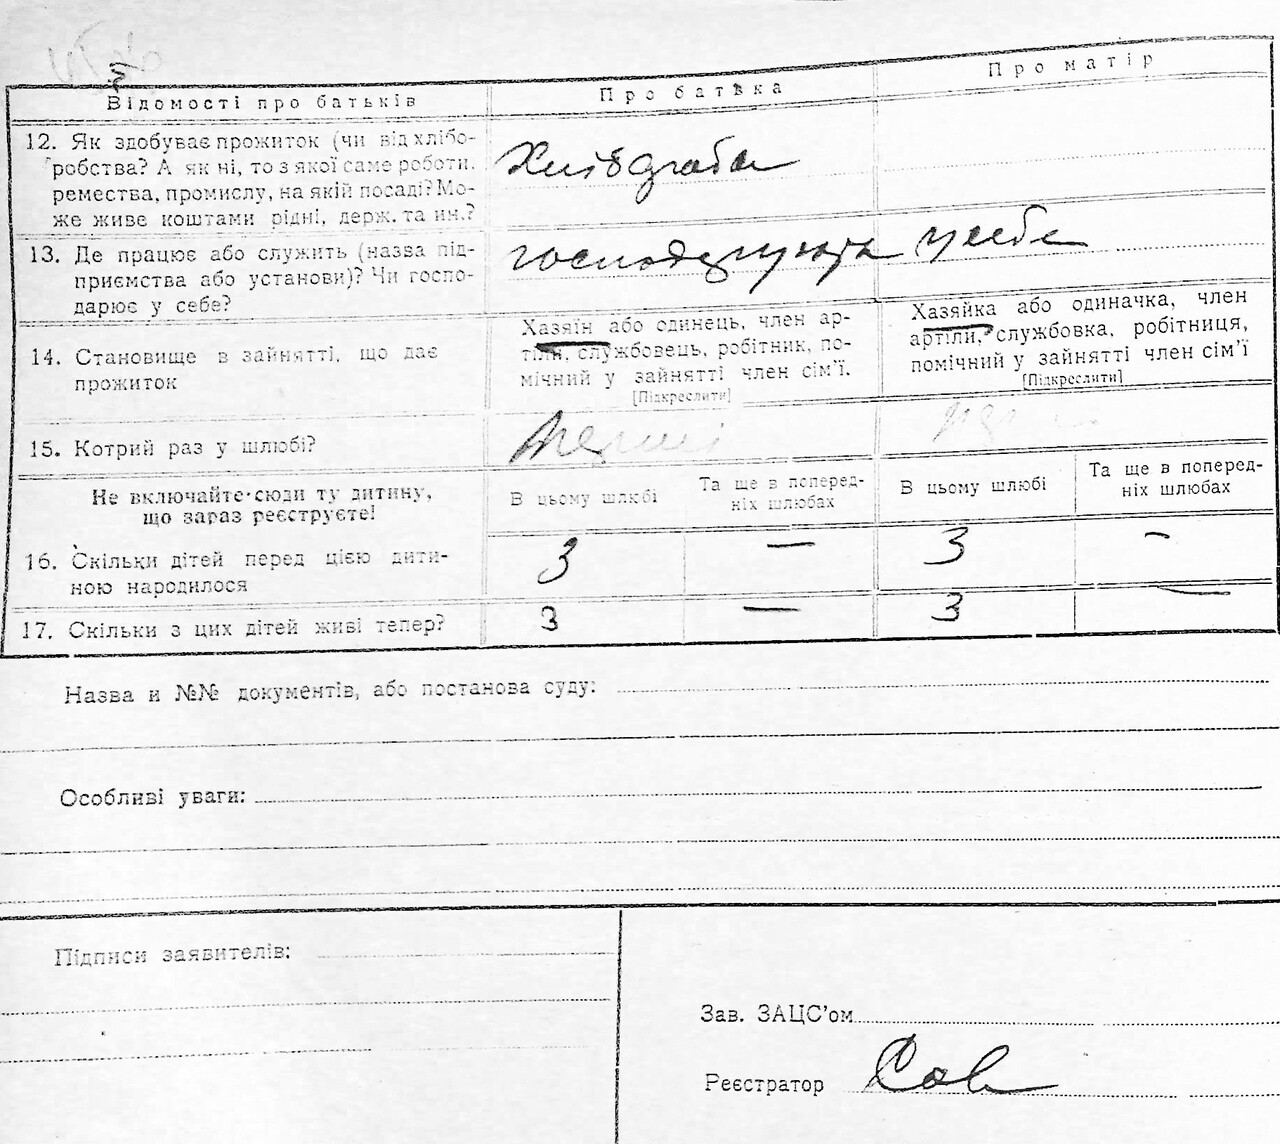 Відомості про батьків
Про батька
Про матір
12. Як здобуває прожиток (чи від хлібо-
робства? А як ні, то з якої саме роботи,
ремества, промислу, на якій посаді? Мо-
же живе коштами рідні, держ. та ин.?
13. Де працює або служить (назва під-
приємства або установи)? Чи госпо-
дарює у себе?
у себе
14. Становище в зайнятті, що дає
прожиток
Хазяїн або одинець, член ар-
тіли, службовець, робітник, по-
мічний у зайнятті член сім'ї.
[Підкреслити]
Хазяйка або одиначка, член
артіли, службовка, робітниця,
помічний у зайнятті член сім'ї
[Підкреслити]
15. Котрий раз у шлюбі?
Не включайте сюди ту дитину,
що зараз реєструєте!
В цьому шлюбі
Та ще в поперед-
ніх шлюбах
В цьому шлюбі
Та ще в поперед-
ніх шлюбах
16. Скільки дітей перед цією дити-
ною народилося
3 — 3 —
17. Скільки з цих дітей живі тепер?
3 — 3 —
Назва и №№ документів, або постанова суду:
Особливі уваги:
Підписи заявителів:
Зав. ЗАЦС'ом
Реєстратор